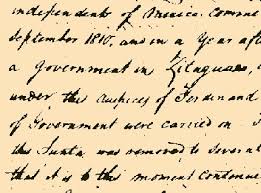 independents of Mexico. Comme
September 1810, and in a Year aft
a Government in Zitaguaro,
under the auspices of Ferdinand
of Government were carried on
this Junta was removed to several
that it is to this moment continue